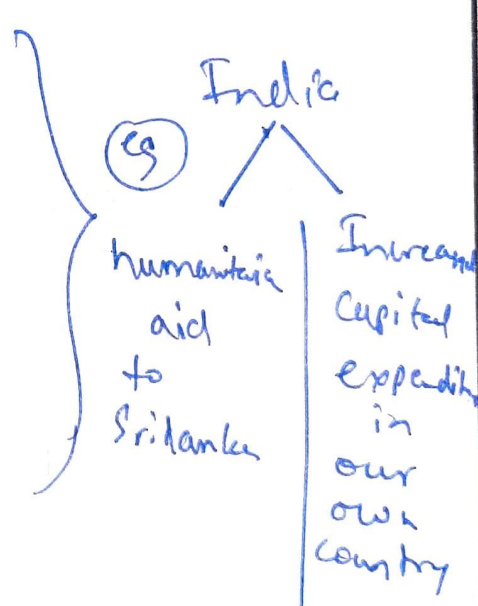 India
eg
humanitaria
aid
to
Srilanka
Increased
Capital
expenditu
in
our
own
country